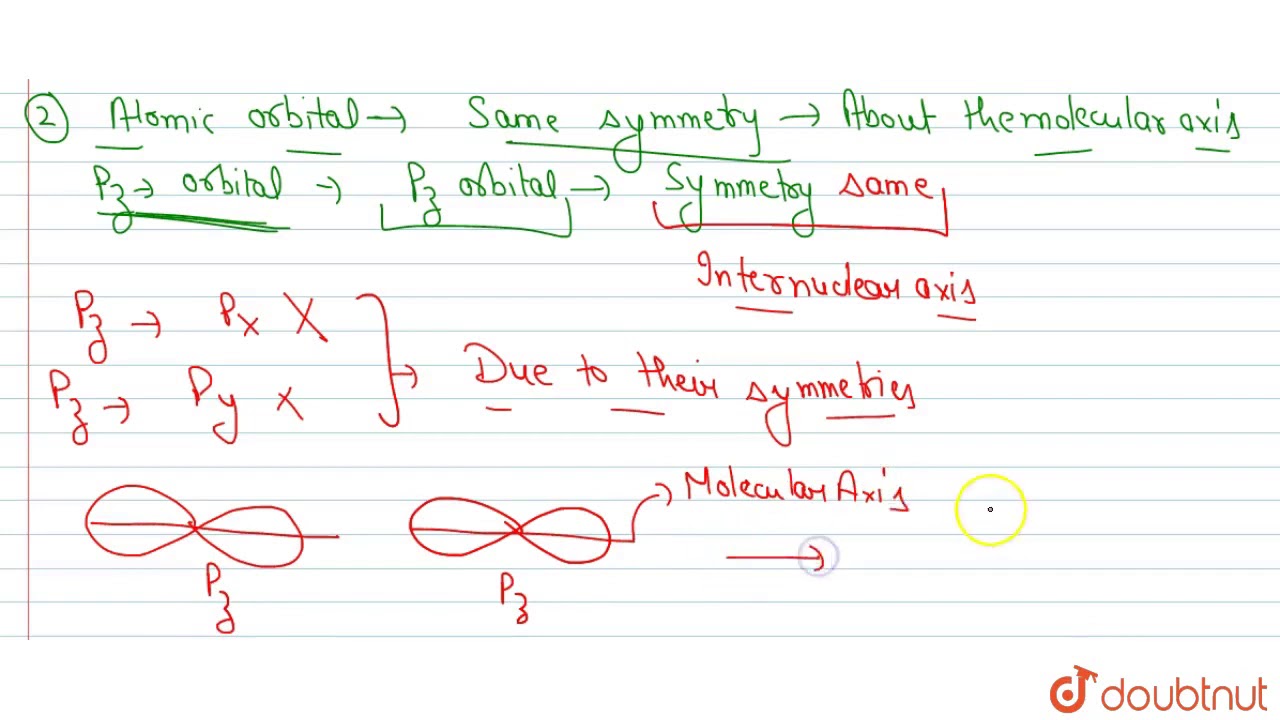 ② Atomic orbital → Same symmetry → About the molecular axis
Pz → orbital → Pz orbital → Symmetry same
Internuclear axis
Pz → Px X
Pz → Py X
→ Due to their symmetries
→ Molecular Axis
→
Pz Pz
doubtnut